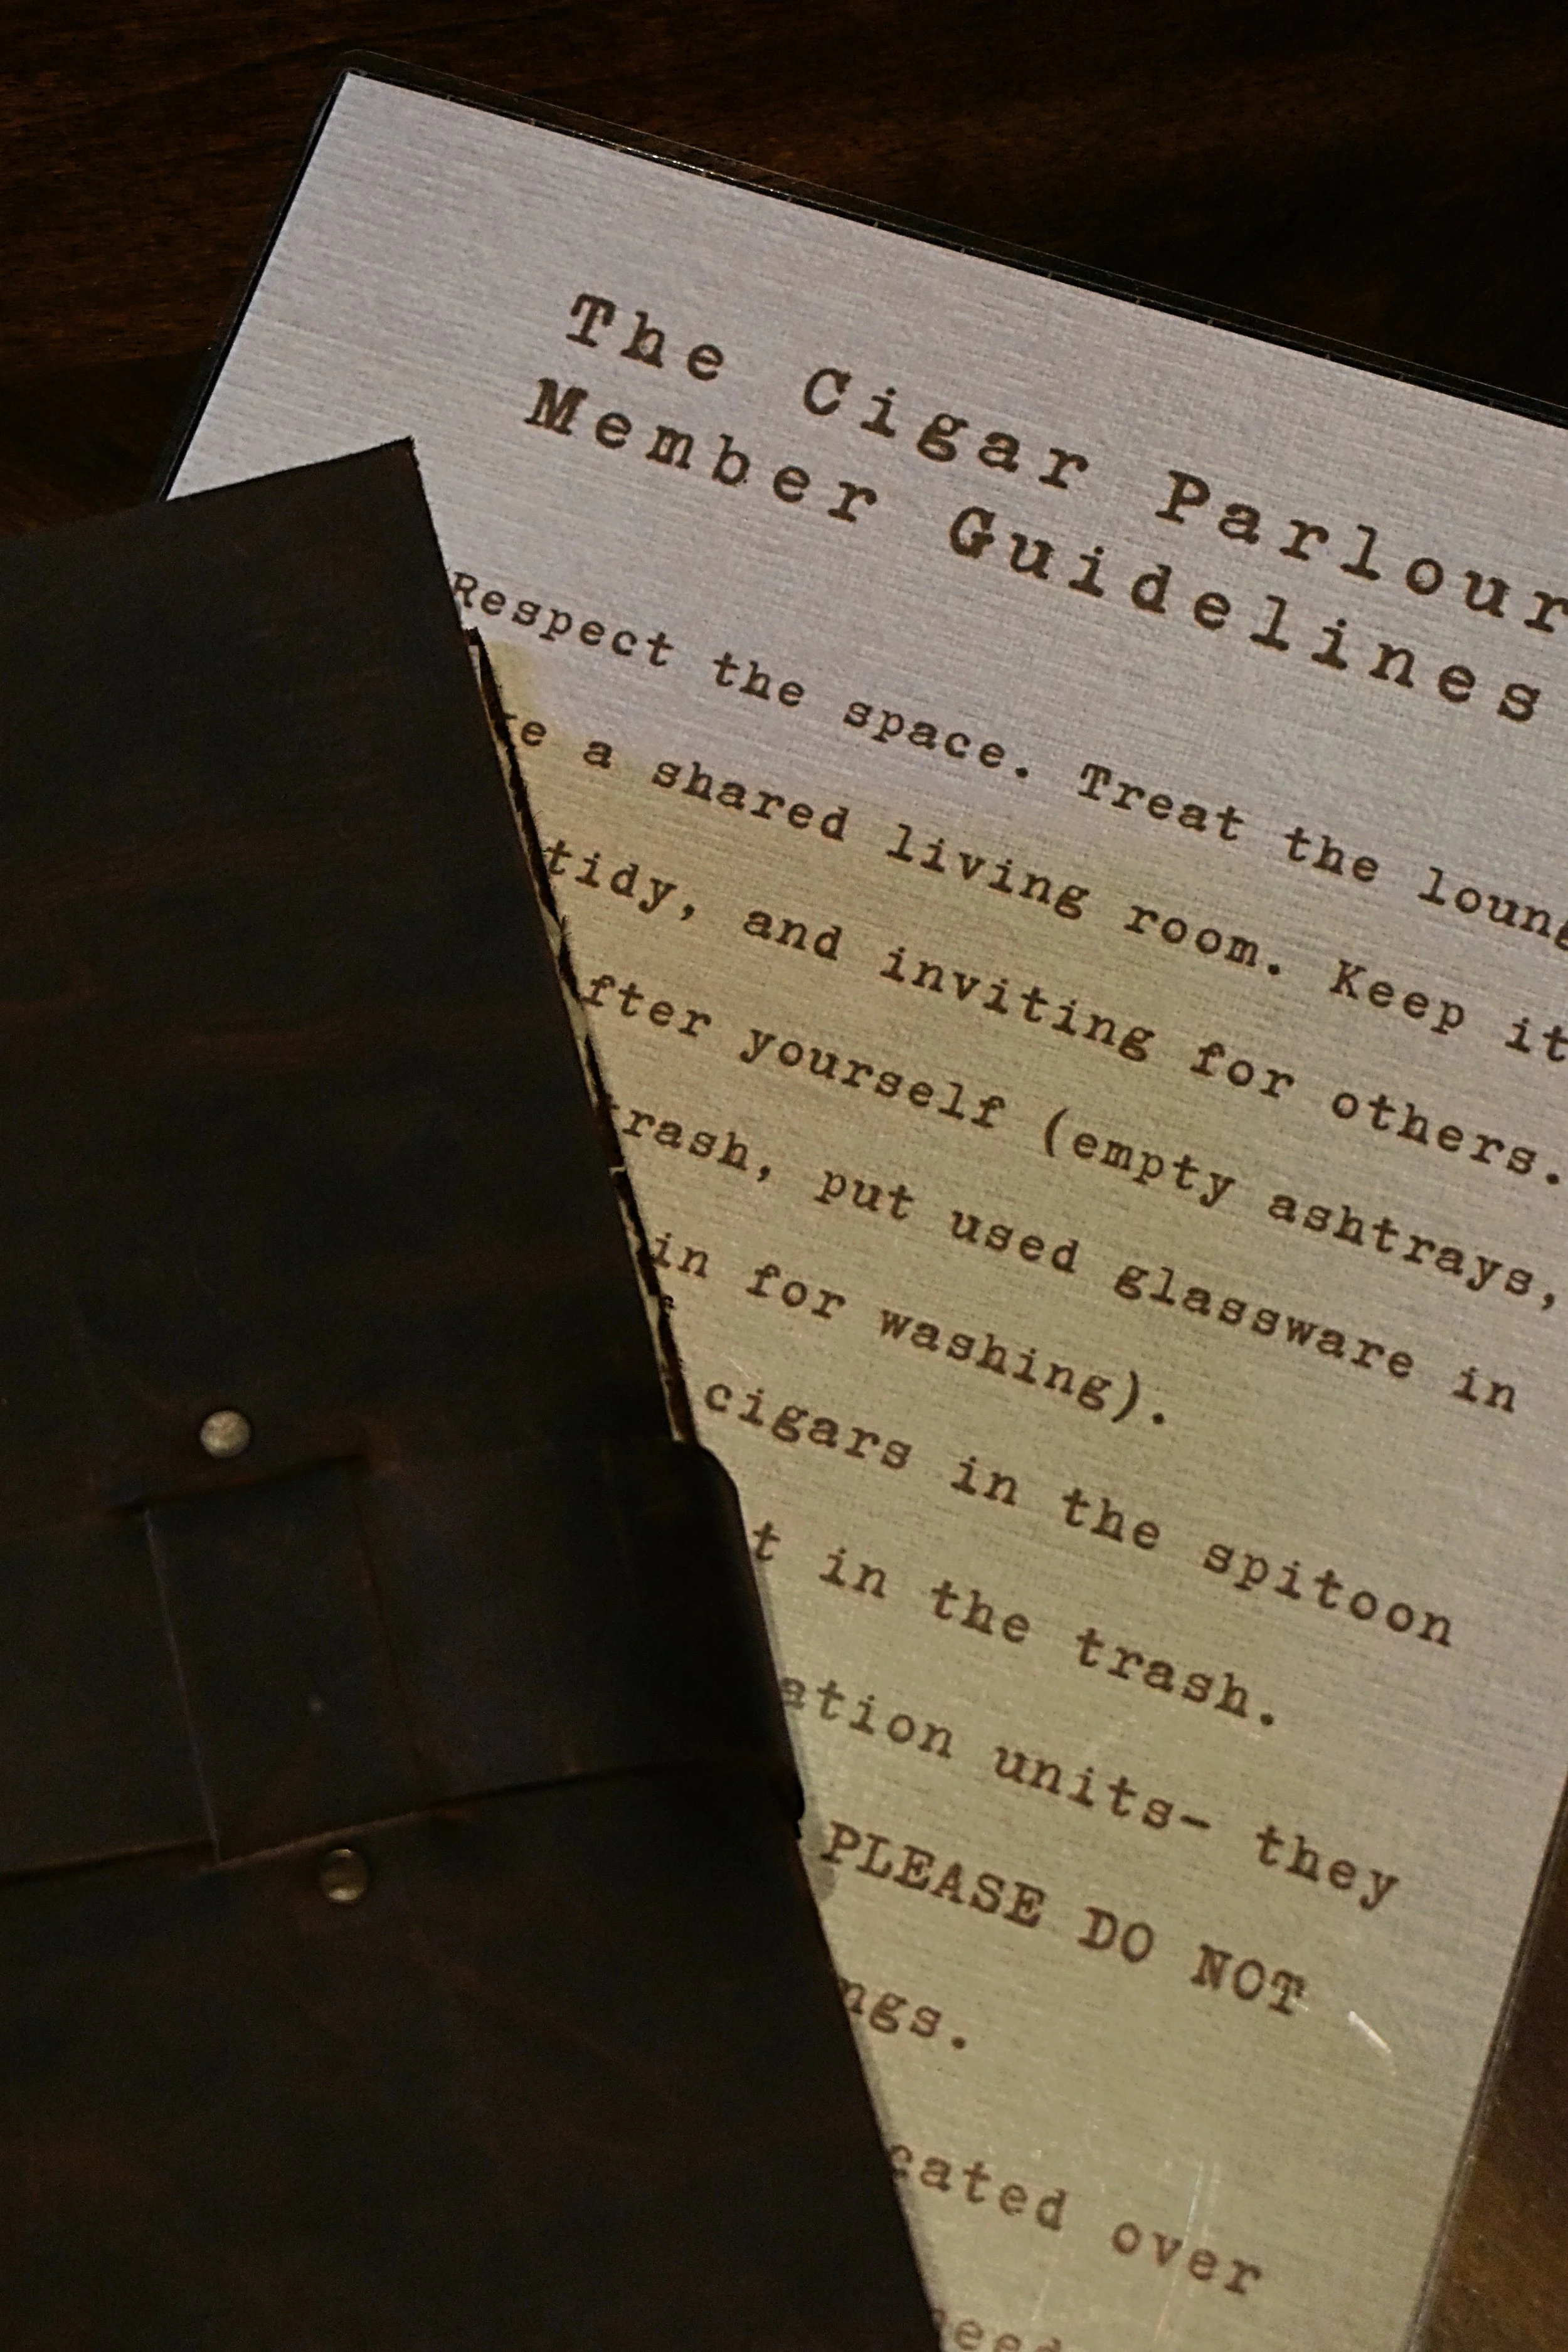 The Cigar Parlour
Member Guidelines
Respect the space. Treat the
a shared living room. Keep it
tidy, and inviting for others.
yourself (empty ashtrays,
put used glassware in
in for washing).
cigars in the spitoon
in the trash.
units- they
PLEASE DO NOT
over